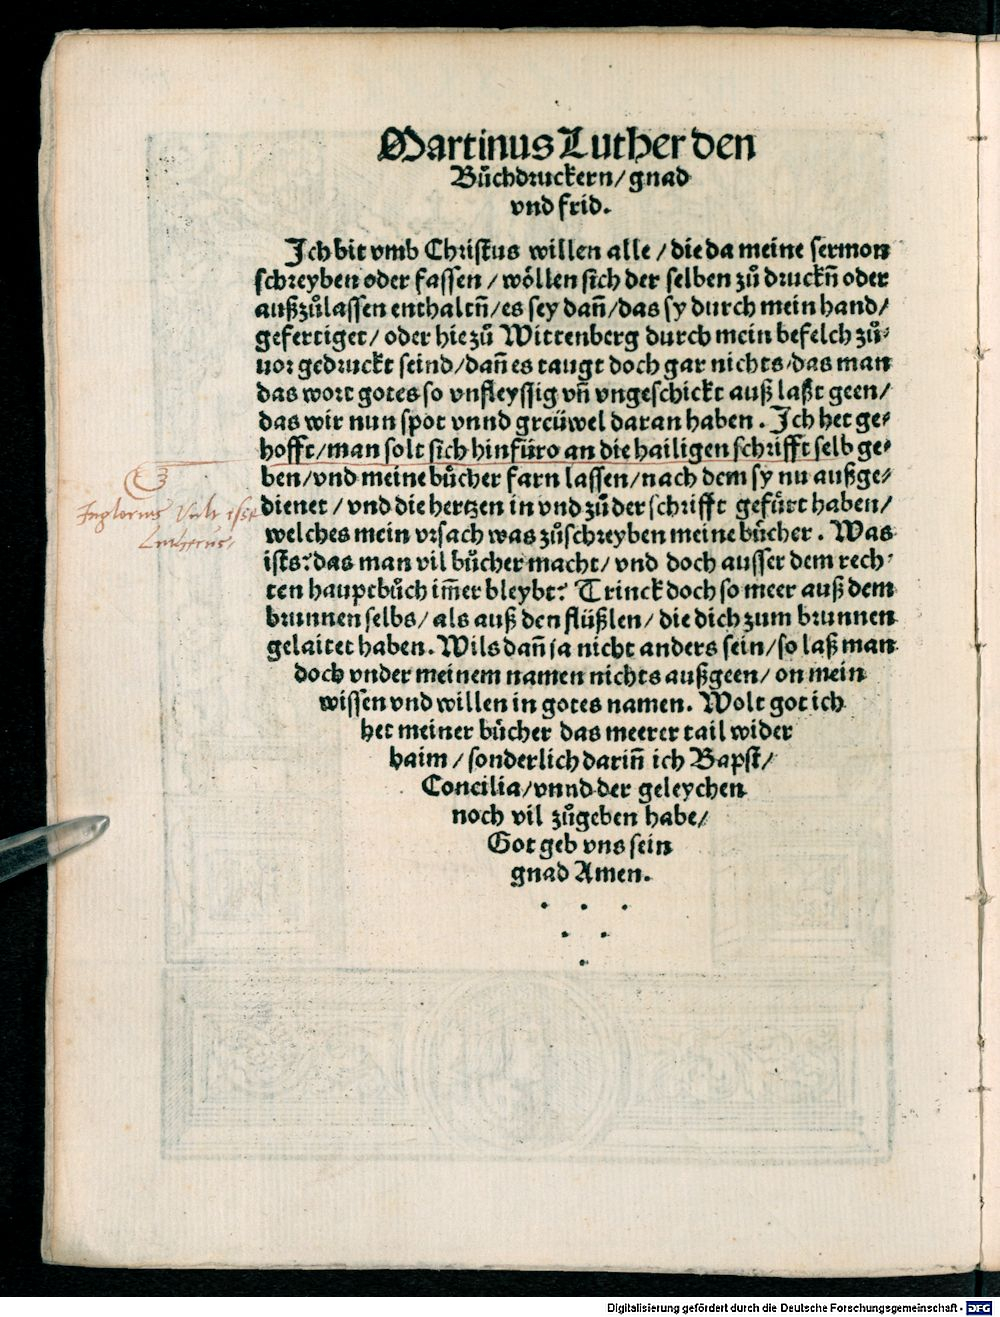 Martinus Luther den
Bůchdruckern/ gnad
vnd frid.
Ich bit vmb Christus willen alle / die da meine sermon
schreyben oder fassen / wöllen sich der selben zů druckn̄ oder
außzůlassen enthaltn̄/ es sey dan̄/ das sy durch mein hand/
gefertiget/ oder hie zů Wittenberg durch mein befelch zů⸗
uor gedruckt seind/ dan̄ es taugt doch gar nichts/ das man
das wort gotes so vnfleyssig vn̄ vngeschickt auß laßt geen/
das wir nun spot vnnd greüwel daran haben. Ich het ge⸗
hofft/ man solt sich hinfüro an die hailigen schrifft selb ge⸗
ben/ vnd meine bůcher farn lassen/ nach dem sy nu außge⸗
dienet / vnd die hertzen in vnd zů der schrifft gefůrt haben/
welches mein vrsach was zůschreyben meine bůcher. Was
ists? das man vil bůcher macht/ vnd doch ausser dem rech⸗
ten hauptbůch im̄er bleybt? Trinck doch so meer auß dem
brunnen selbs/ als auß den flüßlen/ die dich zum brunnen
gelaitet haben. Wils dan̄ ja nicht anders sein/ so laß man
doch vnder meinem namen nichts außgeen/ on mein
wissen vnd willen in gotes namen. Wolt got ich
het meiner bůcher das meerer tail wider
haim / sonderlich darin̄ ich Bapst/
Concilia/ vnnd der geleychen
noch vil zůgeben habe/
Got geb vns sein
gnad Amen.
vult esse
Lutherus/
Digitalisierung gefördert durch die Deutsche Forschungsgemeinschaft - DFG